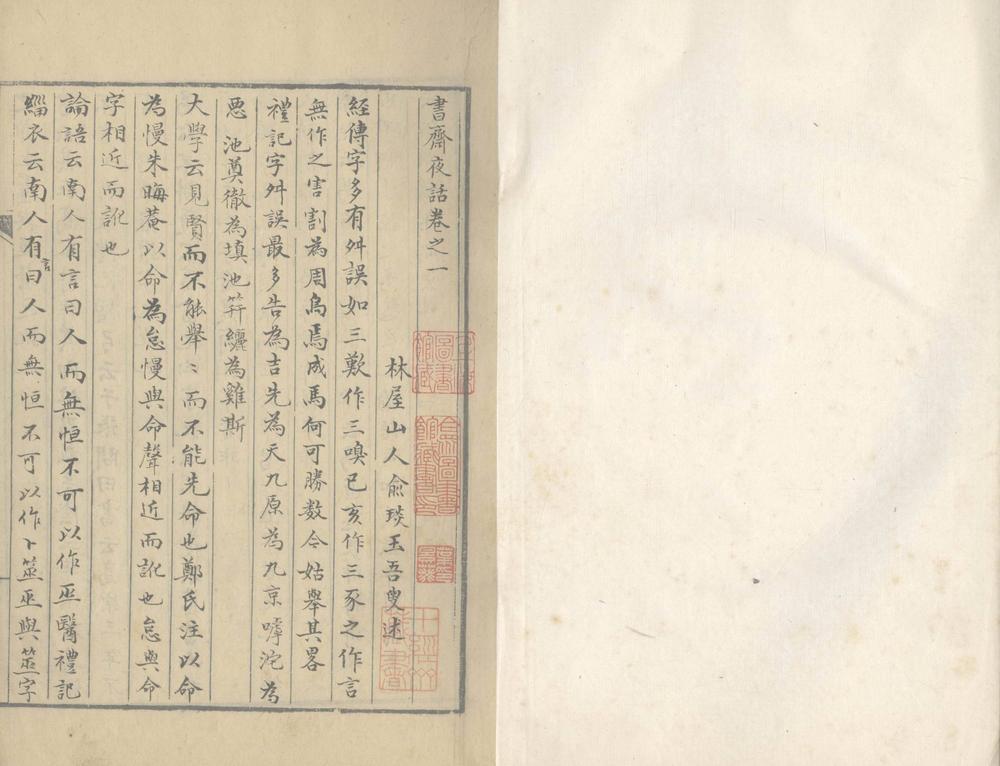 書齋夜話卷之一
林屋山人俞琰玉吾叟述
經傳字多有舛誤如三歎作三嗅已亥作三豕之作言
無作之害割為周烏焉成馬何可勝數今姑舉其畧
禮記字舛誤最多告為吉先為天九原為九京嘑沱為
惡池奠徹為填池笄纚為雞斯
大學云見賢而不能舉〻而不能先命也鄭氏注以命
為慢朱晦菴以命為怠慢與命聲相近而訛也怠與命
字相近而訛也
論語云南人有言曰人而無恒不可以作巫醫禮記
緇衣云南人有言曰人而無恒不可以作卜筮巫與筮字